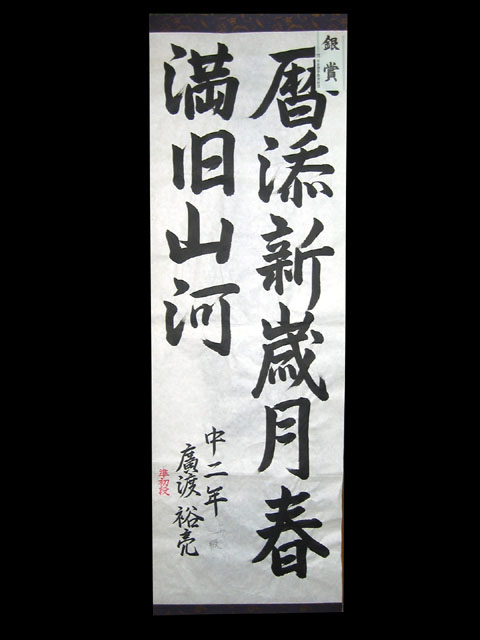 銀賞
暦添新歳月春
満旧山河
中二年
廣渡裕亮
準初段